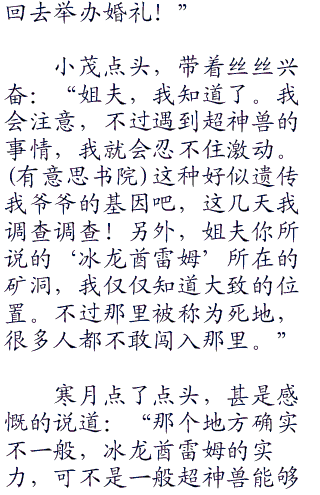 回去举办婚礼！”
小茂点头，带着丝丝兴
奋：“姐夫，我知道了。我
会注意，不过遇到超神兽的
事情，我就会忍不住激动。
(有意思书院)这种好似遗传
我爷爷的基因吧，这几天我
调查调查！另外，姐夫你所
说的‘冰龙酋雷姆’所在的
矿洞，我仅仅知道大致的位
置。不过那里被称为死地，
很多人都不敢闯入那里。”
寒月点了点头，甚是感
慨的说道：“那个地方确实
不一般，冰龙酋雷姆的实
力，可不是一般超神兽能够